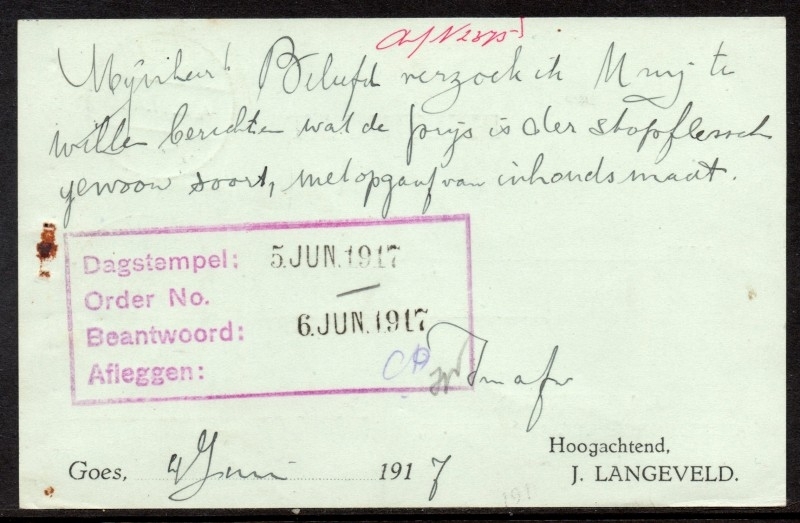 Mijnheer! Beleefd verzoek ik U mij te
willen berichten wat de prijs is der stopflessch
gewoon soort, met opgaaf van inhoudsmaat.
Dagstempel: 5.JUN.1917
Order No. —
Beantwoord: 6.JUN.1917
Afleggen:
Hoogachtend,
Goes, 4 Juni 1917
J. LANGEVELD.